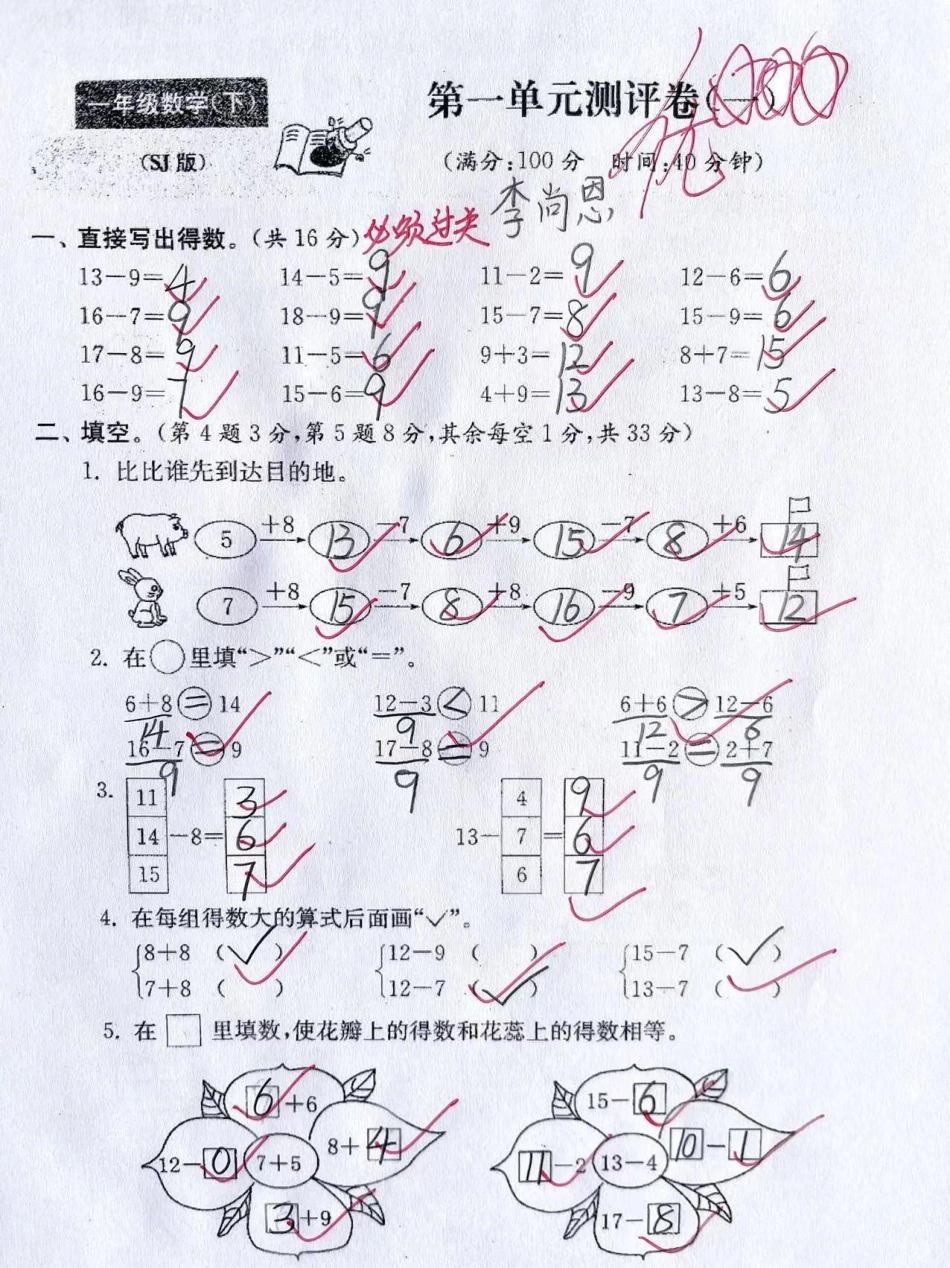 一年级数学(下)
第一单元测评卷(一) 优 100
(SJ版)
(满分:100分 时间:40分钟)
李尚恩
一、直接写出得数。(共16分) 必须过关
13-9=4 14-5=9 11-2=9 12-6=6
16-7=9 18-9=9 15-7=8 15-9=6
17-8=9 11-5=6 9+3=12 8+7=15
16-9=7 15-6=9 4+9=13 13-8=5
二、填空。(第4题3分,第5题8分,其余每空1分,共33分)
1. 比比谁先到达目的地。
5 +8 13 -7 6 +9 15 -7 8 +6 14
7 +8 15 -7 8 +8 16 -9 7 +5 12
2. 在○里填“>”“<”或“=”。
6+8=14 12-3<11 6+6>12-6
14 9 12 6
16-7=9 17-8=9 11-2=2+7
9 9 9 9
3. 11 3 4 9
14 -8= 6 13- 7 = 6
15 7 6 7
4. 在每组得数大的算式后面画“✓”。
8+8 (✓) 12-9 ( ) 15-7 (✓)
7+8 ( ) 12-7 (✓) 13-7 ( )
5. 在□里填数,使花瓣上的得数和花蕊上的得数相等。
6+6 15-6
12-0 7+5 8+4 11-2 13-4 10-1
3+9 17-8